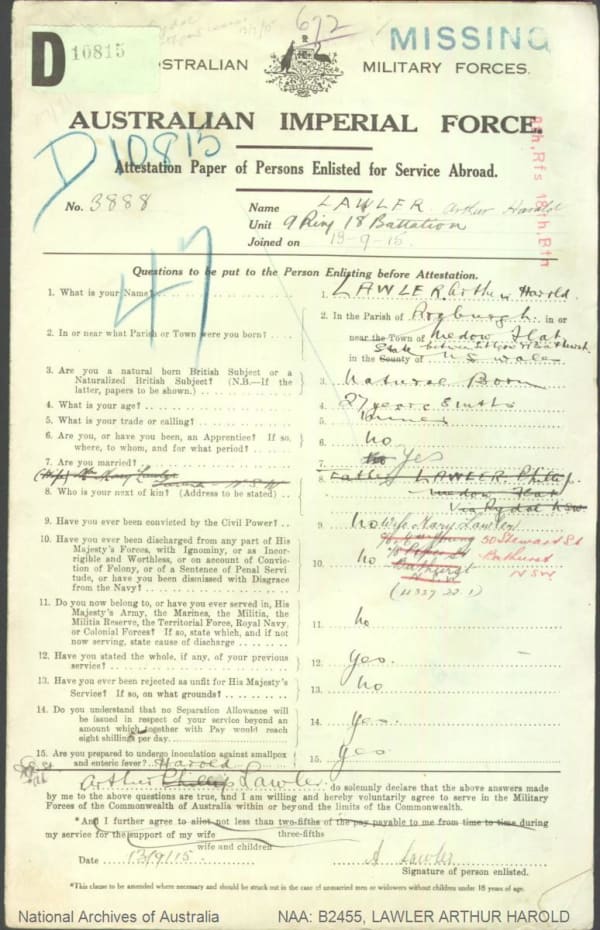 672
MISSING
D 10815
AUSTRALIAN MILITARY FORCES.
AUSTRALIAN IMPERIAL FORCE.
D10815
Attestation Paper of Persons Enlisted for Service Abroad.
8th, Rfs 18th, Btn
No. 3888
Name LAWLER Arthur Harold
Unit 9 Ring 18 Battation
Joined on 13-9-15.
47
Questions to be put to the Person Enlisting before Attestation.
1. What is your Name?
1. LAWLER, Arthur Harold.
2. In or near what Parish or Town were you born?
2. In the Parish of in or
near the Town of Medow Flat
in the County of N S Wales
3. Are you a natural born British Subject or a
Naturalized British Subject? (N.B.—If the
latter, papers to be shown.)
3. Natural Born
4. What is your age?
4. 27 years 8 mths
5. What is your trade or calling?
5.
6. Are you, or have you been, an Apprentice? If so,
where, to whom, and for what period?
6. No
7. Are you married?
7. No Yes
(Wife) Mrs Mary Lawler
N S W
8. Who is your next of kin? (Address to be stated)
8. Father LAWLER. Phillip.
Medow Flat
Via Rydal NSW
Wife Mary Lawler
50 Steward St
Bathurst
NSW
Bathurst
(11337 22.1)
9. Have you ever been convicted by the Civil Power?
9. No
10. Have you ever been discharged from any part of His
Majesty's Forces, with Ignominy, or as Incor-
rigible and Worthless, or on account of Convic-
tion of Felony, or of a Sentence of Penal Servi
tude, or have you been dismissed with Disgrace
from the Navy?
10. No
11. Do you now belong to, or have you ever served in, His
Majesty's Army, the Marines, the Militia, the
Militia Reserve, the Territorial Force, Royal Navy,
or Colonial Forces? If so, state which, and if not
now serving, state cause of discharge
11. No
12. Have you stated the whole, if any, of your previous
service?
12. Yes.
13. Have you ever been rejected as unfit for His Majesty's
Service? If so, on what grounds?
13. No
14. Do you understand that no Separation Allowance will
be issued in respect of your service beyond an
amount which together with Pay would reach
eight shillings per day.
14. Yes.
15. Are you prepared to undergo inoculation against smallpox
and enteric fever?
15. Yes
Harold
Arthur Phillip Lawler do solemnly declare that the above answers made
by me to the above questions are true, and I am willing and hereby voluntarily agree to serve in the Military
Forces of the Commonwealth of Australia within or beyond the limits of the Commonwealth.
*And I further agree to allot not less than two-fifths of the pay payable to me from time to time during
three-fifths
my service for the support of my wife
wife and children
Date 13/9/15.
A Lawler
Signature of person enlisted.
*This clause to be amended where necessary and should be struck out in the case of unmarried men or widowers without children under 18 years of age.
National Archives of Australia
NAA: B2455, LAWLER ARTHUR HAROLD